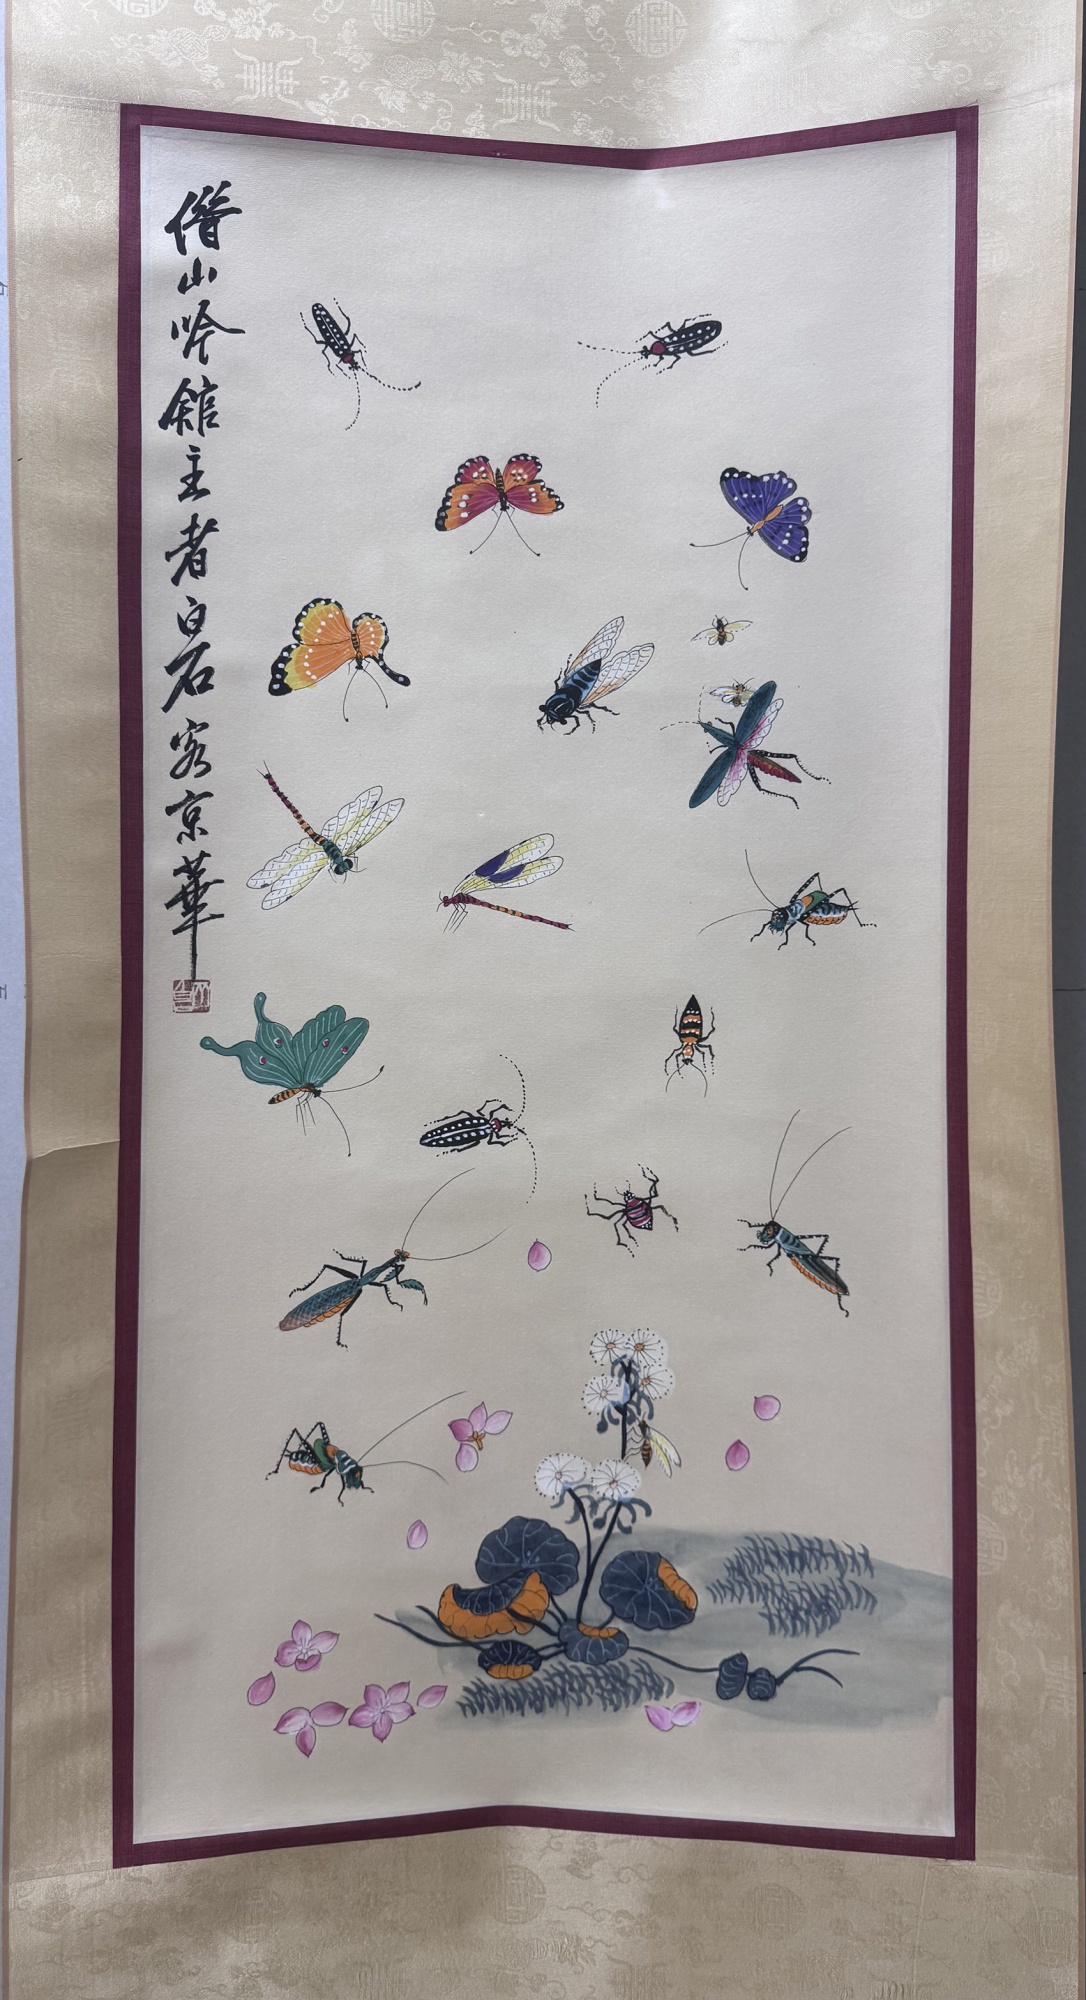 借山吟館主者白石客京華
白石